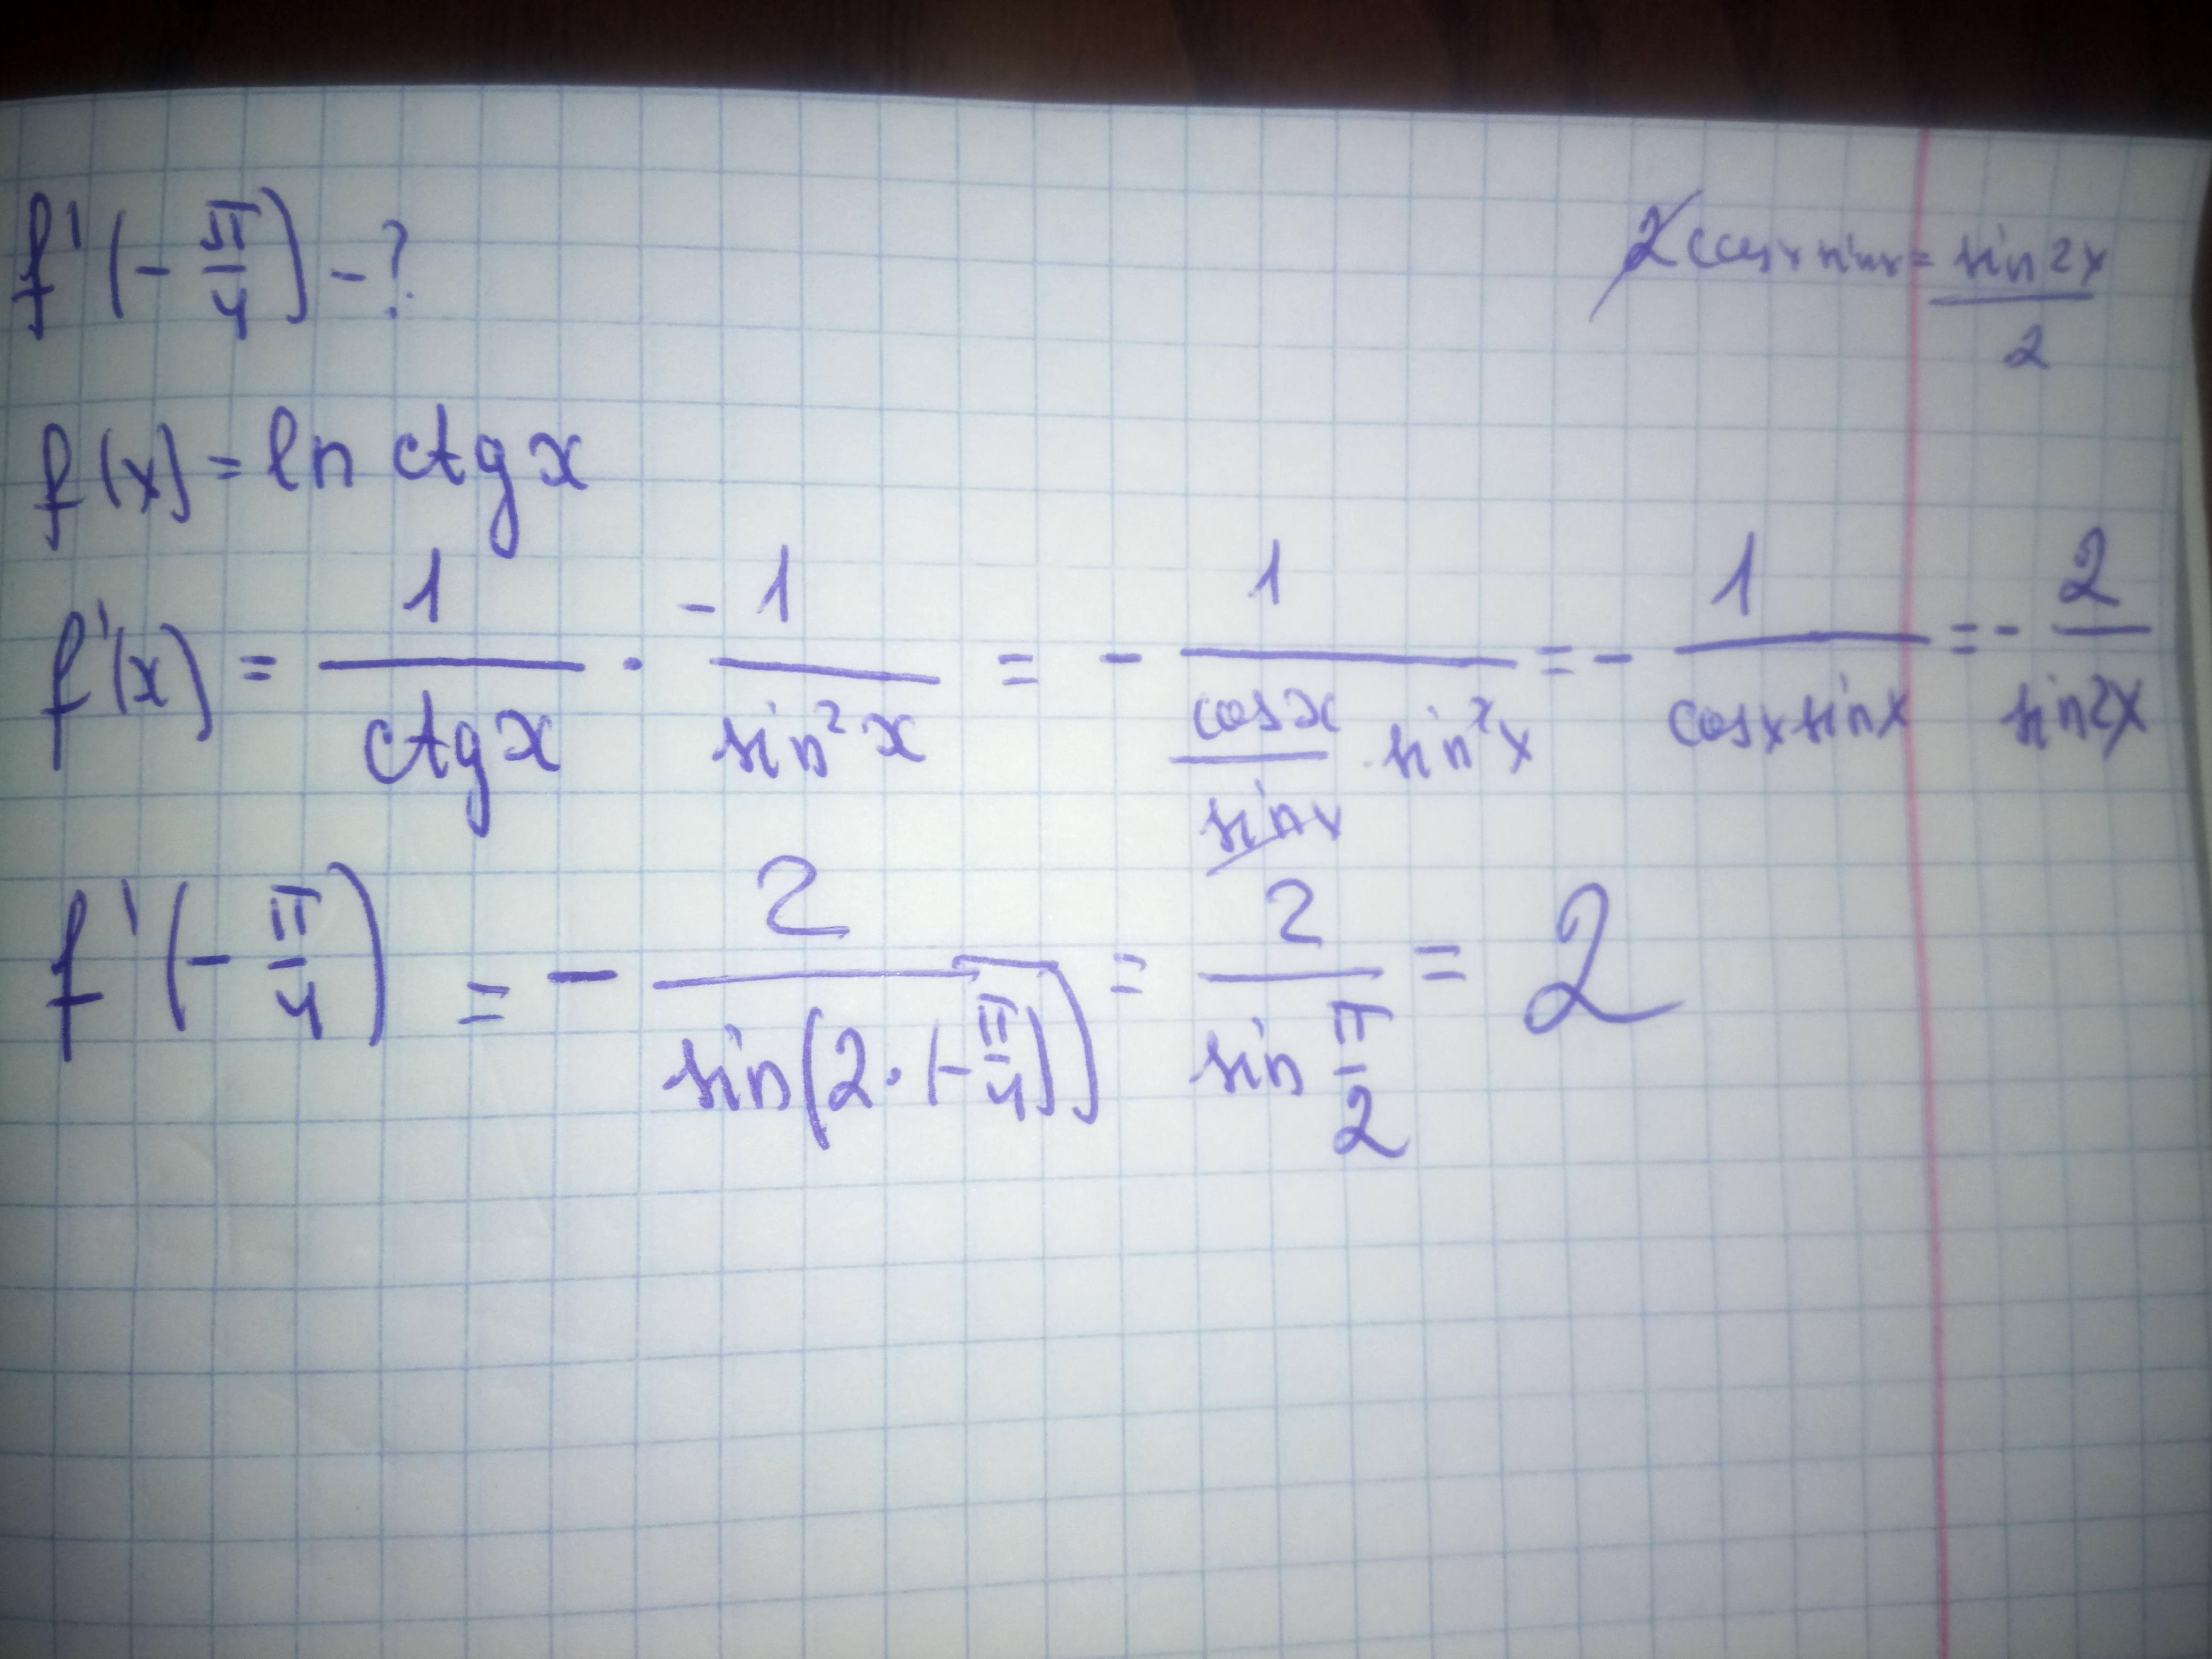 f'(-π/4) - ?
2cosx sinx = sin2x/2
f(x) = ln ctgx
f'(x) = 1/ctgx · -1/sin²x = - 1/(cosx/sinx · sin²x) = - 1/(cosx sinx) = - 2/sin2x
f'(-π/4) = - 2/sin(2·(-π/4)) = 2/sin π/2 = 2